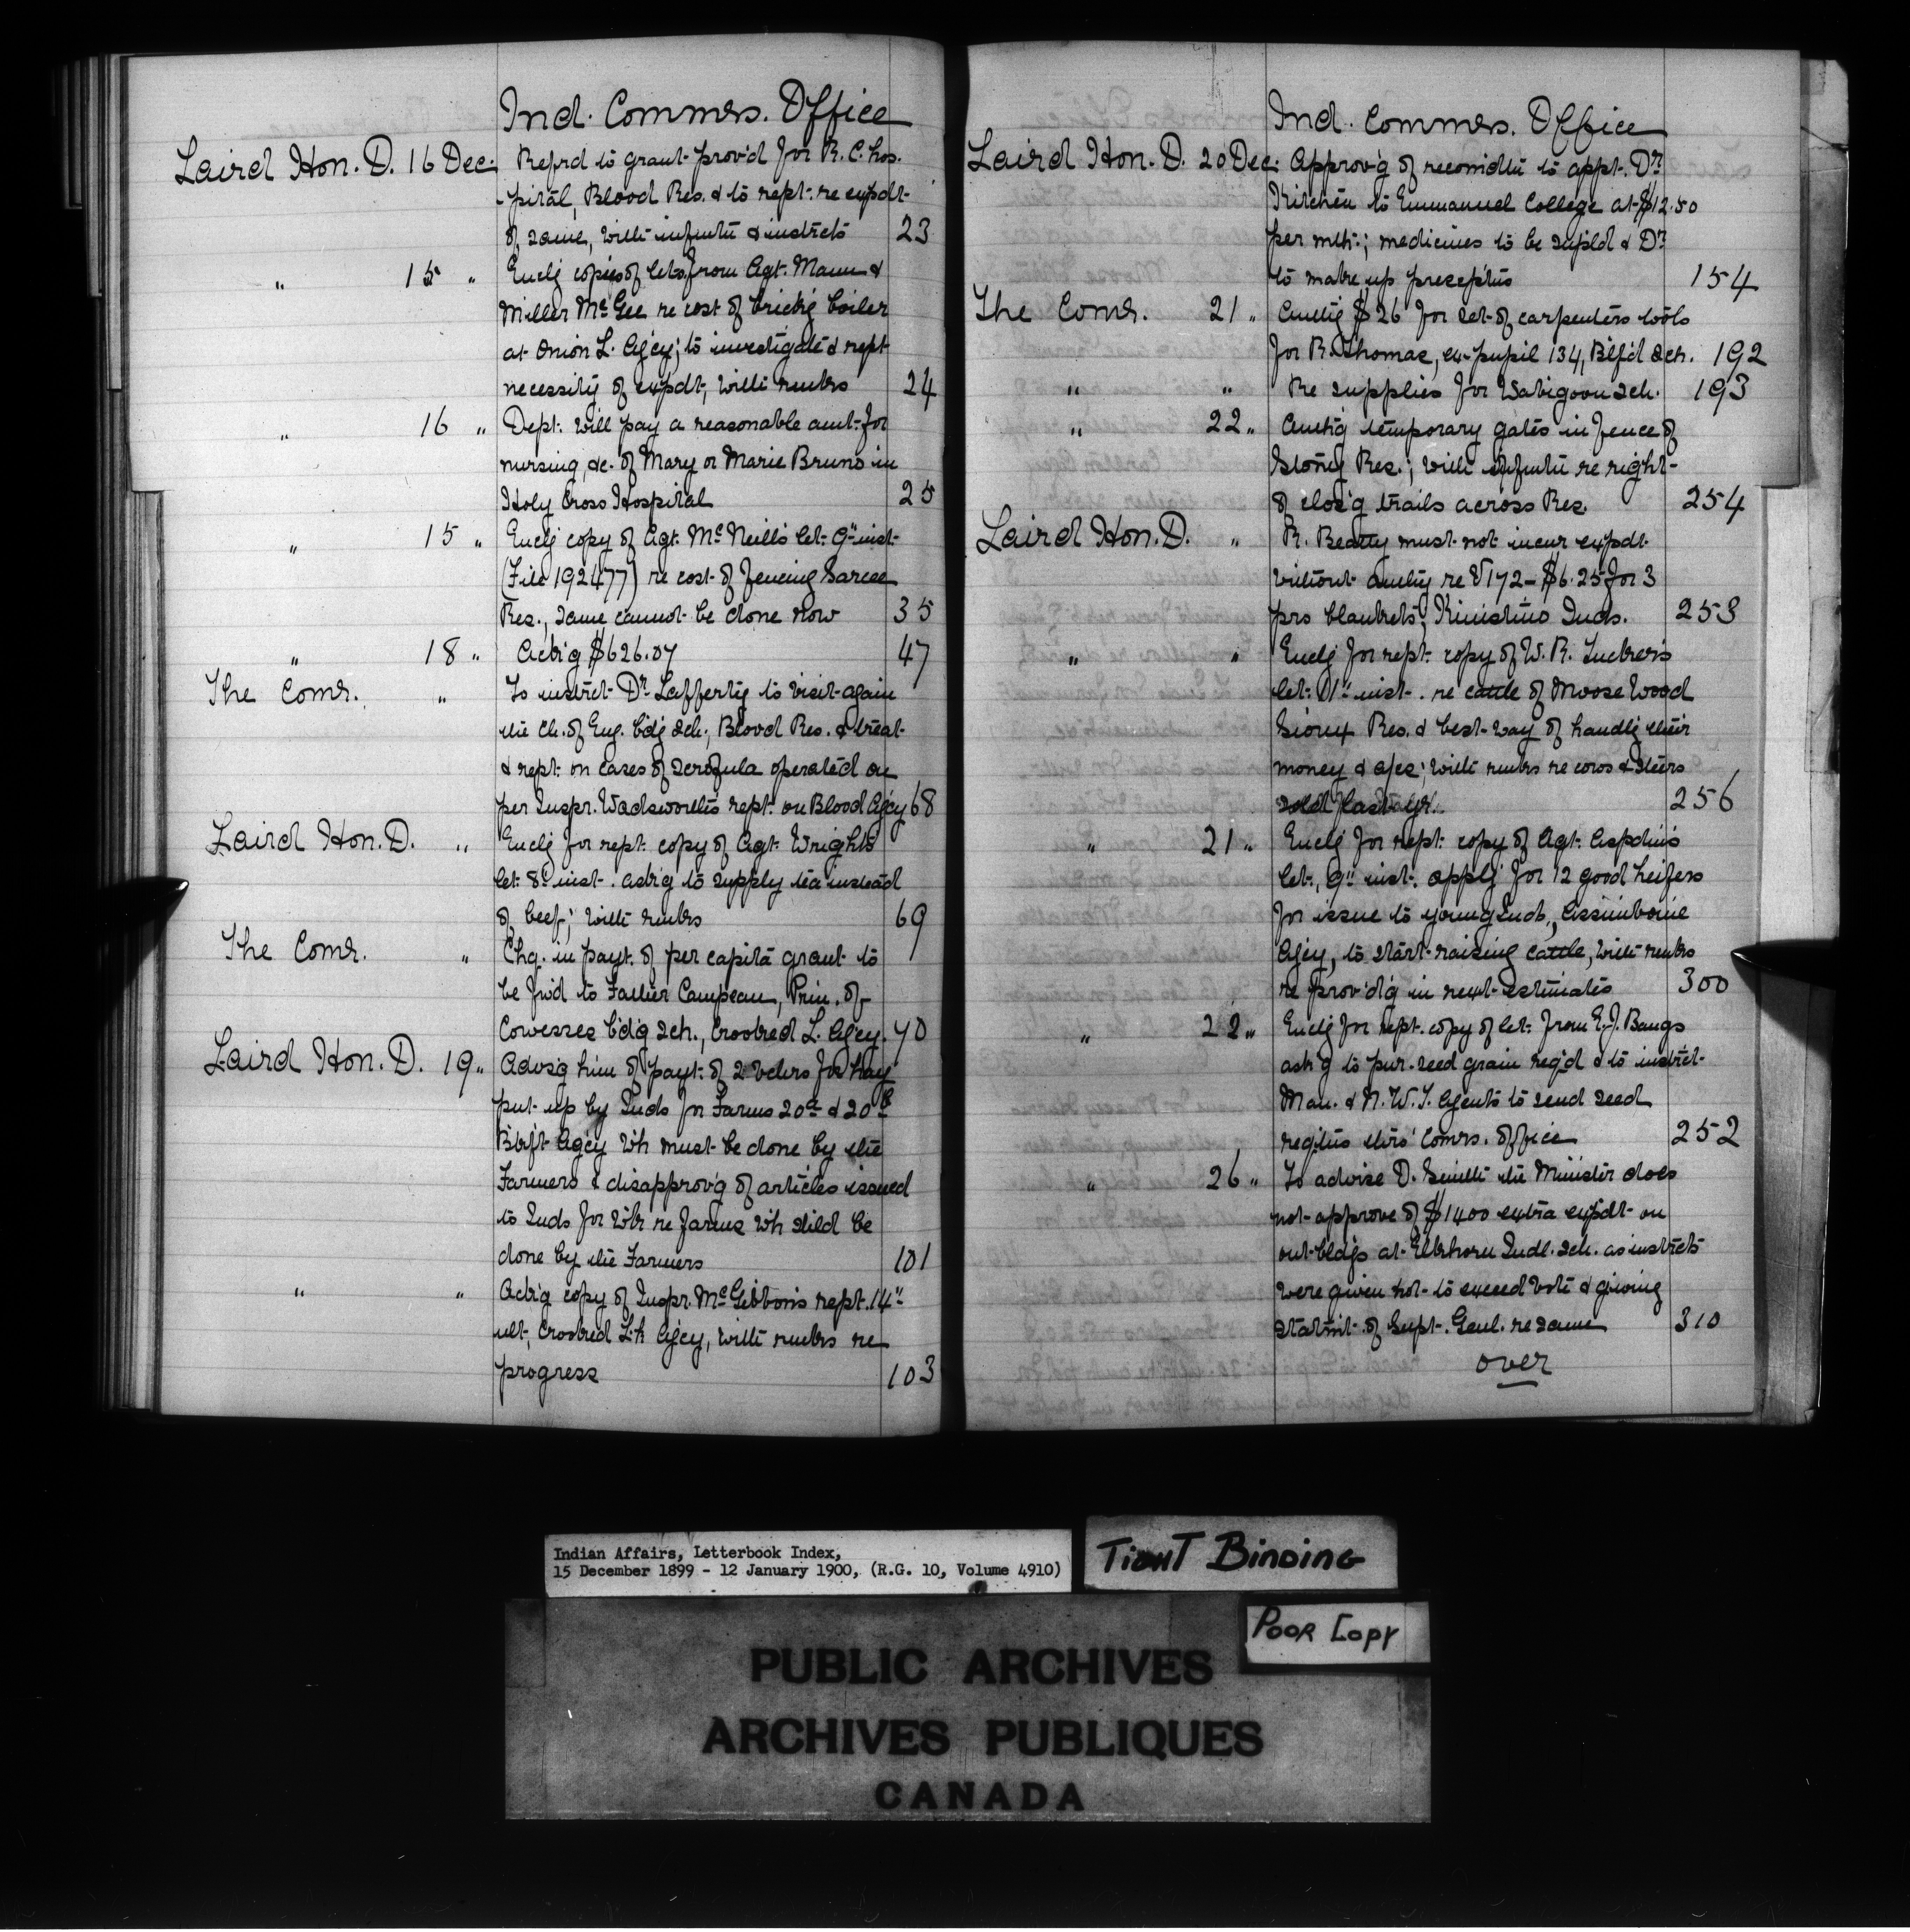 Ind. Commrs. Office
Laird Hon. D. 16 Dec. Refrd to grant prov'd for R. C. hos-
-pital, Blood Res. & to rept. re expdt
of same, with infmtn & instrcts 23
" 15 " Enclg copies of lets from Agt. Mann &
Miller McGee re cost of brick'g boiler
at Onion L. Agcy; to investigate & rept
necessity of expdt, with rmks 24
" 16 " Dept. will pay a reasonable amt. for
nursing, &c. of Mary or Marie Bruno in
Holy Cross Hospital 25
" 15 " Enclg copy of Agt. McNeill's let. 9th inst.
(File 192477) re cost of fencing Sarcee
Res., same cannot be done now 35
" 18 " Ackg $626.07 47
The Comr. " To instrct Dr. Lafferty to visit again
the Ch. of Eng. b'd'g sch., Blood Res. & treat
& rept. on cases of scrofula operated on
per Inspr. Wadsworth's rept. on Blood Agcy 68
Laird Hon. D. " Enclg for rept. copy of Agt. Wright's
let. 8th inst. ask'g to supply tea instead
of beef; with rmks 69
The Comr. " Chq. in payt. of per capita grant to
be fwd to Father Campeau, Prin. of
Cowesses b'd'g sch., Crooked L. Agcy. 70
Laird Hon. D. 19 " Advs'g him of payt. of 2 vchrs for hay
put up by Inds for Farms 20a & 20b
B'kft Agcy wh must be done by the
Farmers & disapprov'g of articles issued
to Inds for wk re farms wh shld be
done by the Farmers 101
" " Ack'g copy of Inspr. McGibbon's rept. 14th
ult, Crooked Lk Agcy, with rmks re
progress 103
Ind. Commrs. Office
Laird Hon. D. 20 Dec. Approv'g of recomdtn to appt. Dr.
Kitchen to Emmanuel College at $12.50
per mth; medicines to be supld & Dr.
to make up prescptns 154
The Comr. 21 " Authg $26 for set of carpenters tools
for R. Thomas, ex-pupil 134, B'lf'd Sch. 192
" " Re supplies for Wabigoon Sch. 193
" 22 " Auth'g temporary gates in fence of
Stony Res.; with infmtn re right
of clos'g trails across Res. 254
Laird Hon. D. " R. Beatty must not incur expdt
without authy re V172 - $6.25 for 3
prs blankets, Kinistino Inds. 253
" " Enclg for rept. copy of W. R. Tucker's
let. 11th inst. re cattle of Moose Wood
Sioux Res. & best way of handlg their
money & afcs; with rmks re cows & steers
sold last yr. 256
" 21 " Enclg for rept. copy of Agt. Aspdin's
let., 9th inst. apply'g for 12 good heifers
for issue to young Inds., Assiniboine
Agcy, to start raising cattle, with rmks
re prov'd'g in next estimates 300
" 22 " Enclg for rept. copy of let. from E. J. Bangs
ask'g to pur. seed grain req'd & to instrct
Man. & N. W. T. Agents to send seed
reqstns thro' Comrs. office 252
" 26 " To advise D. Smith the Minister does
not approve of $1400 extra expdt on
out-bldgs at Elkhorn Indl. Sch. as instrcts
were given not to exceed vote & giving
statmt of Supt. Genl. re same 310
over
Indian Affairs, Letterbook Index,
15 December 1899 - 12 January 1900, (R.G. 10, Volume 4910)
TIGHT BINDING
POOR COPY
PUBLIC ARCHIVES
ARCHIVES PUBLIQUES
CANADA